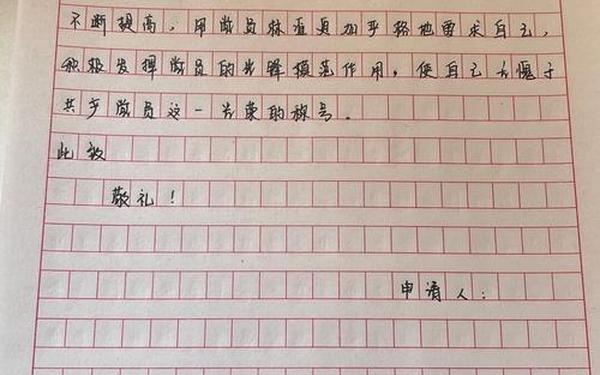 不断提高，用党员标准更加严格地要求自己，
积极发挥党员的先锋模范作用，使自己无愧于
共产党员这一光荣的称号。
此致
敬礼！
申请人：